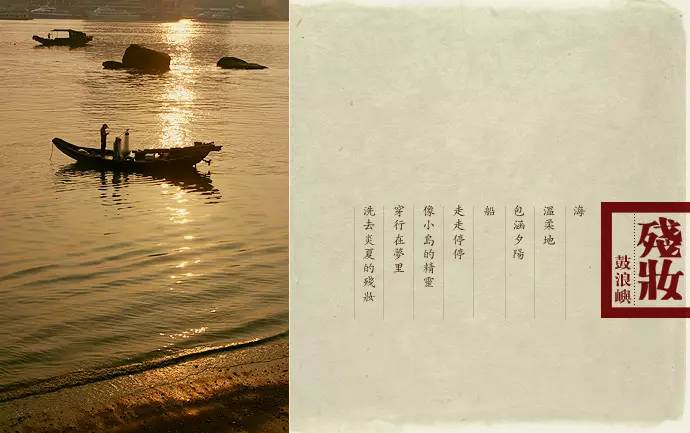 海
溫柔地
包涵夕陽
船
走走停停
像小島的精靈
穿行在夢里
洗去炎夏的殘妝
殘妝
鼓浪嶼